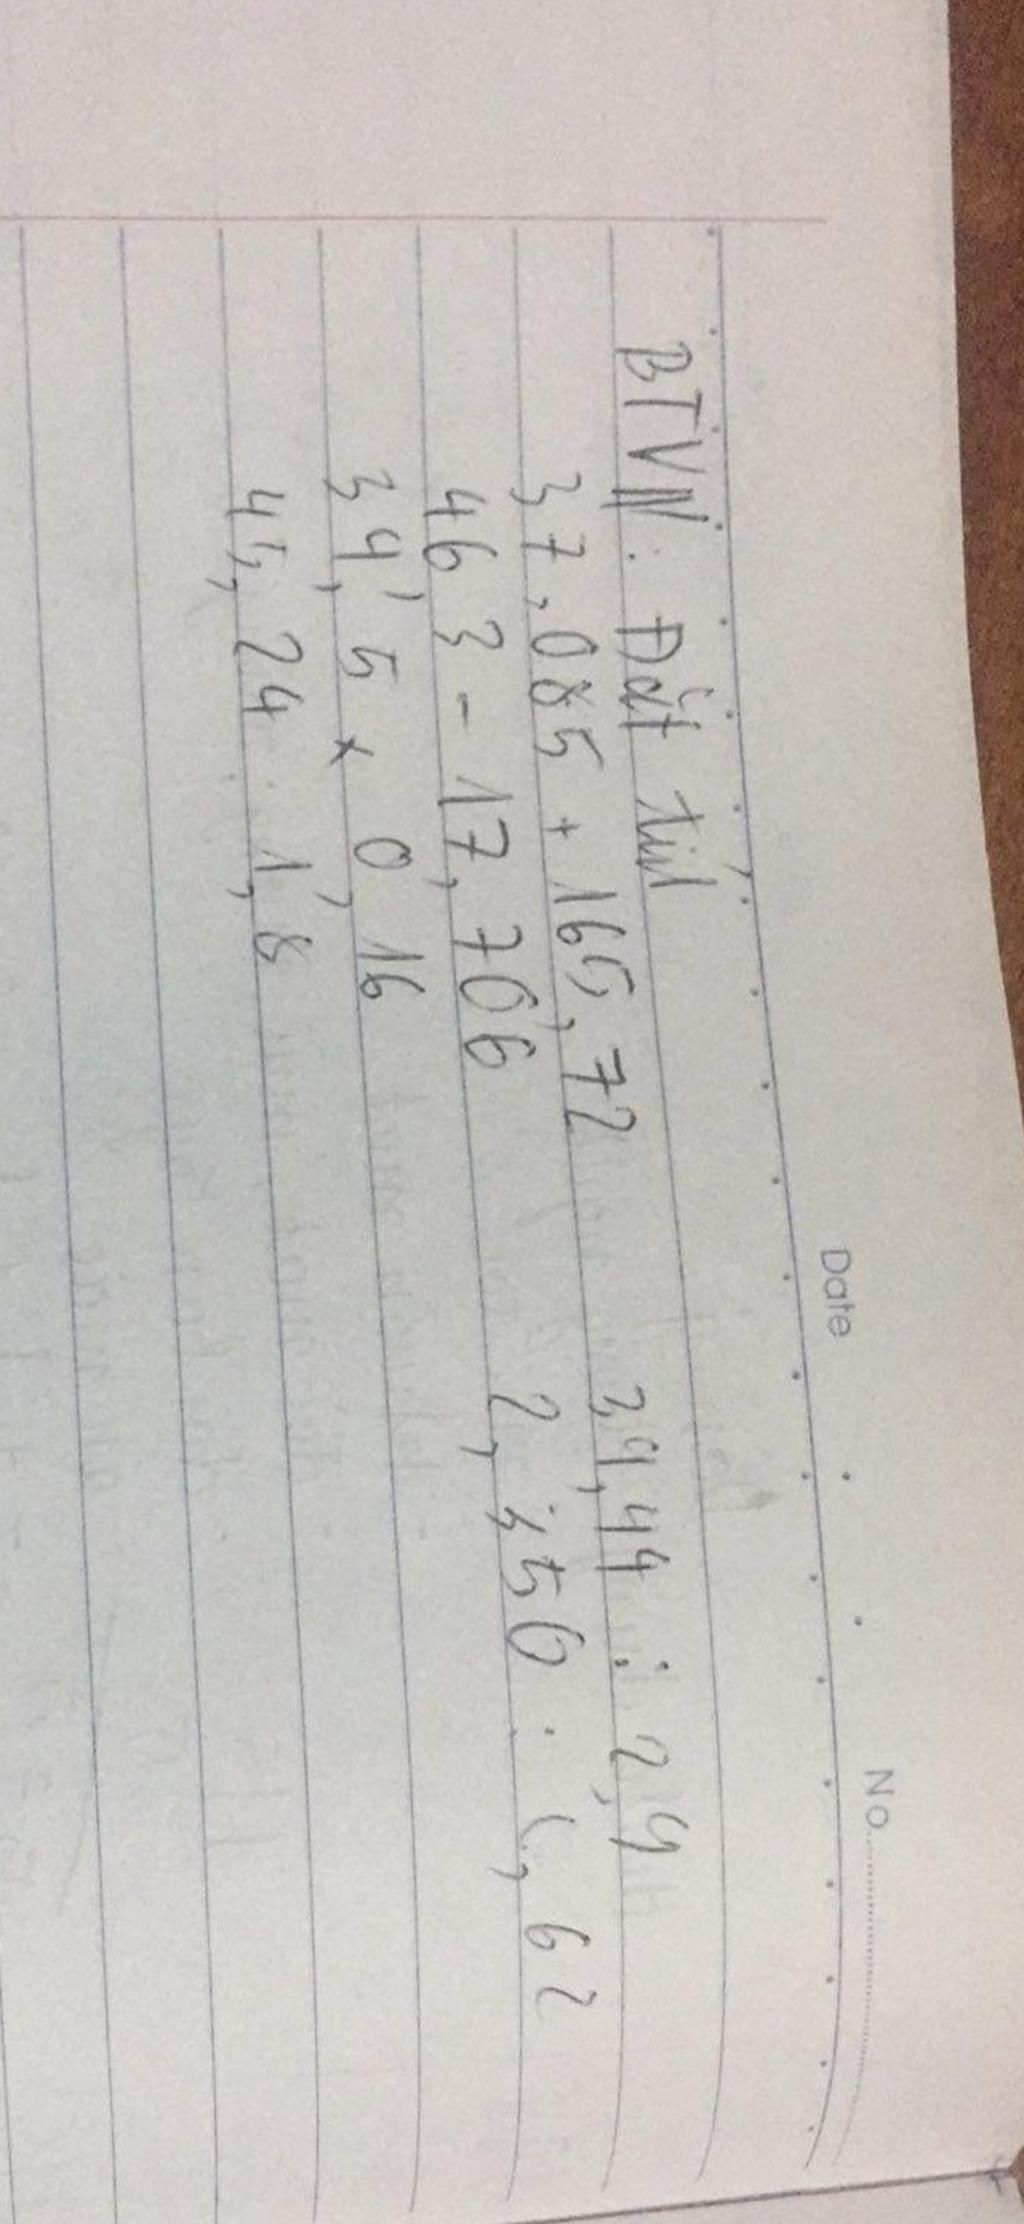 Date
No.
BTVN: Đặt tính
37,085 + 165,72
39,44 : 2,9
463 - 17,706
39,5 x 0,16
45,24 : 1,8